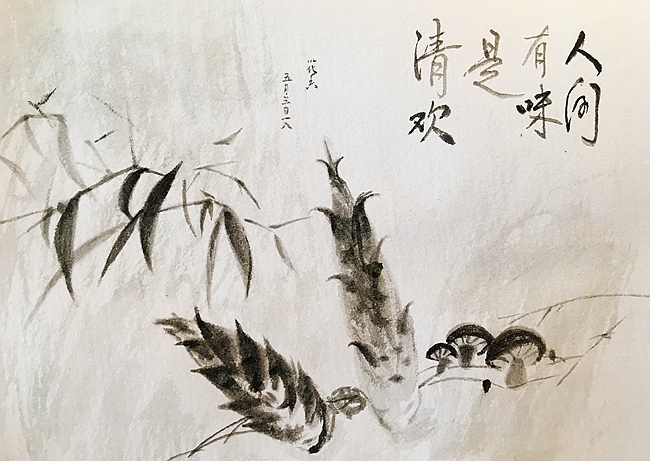 人间
有味
是
清欢
五月三日一八